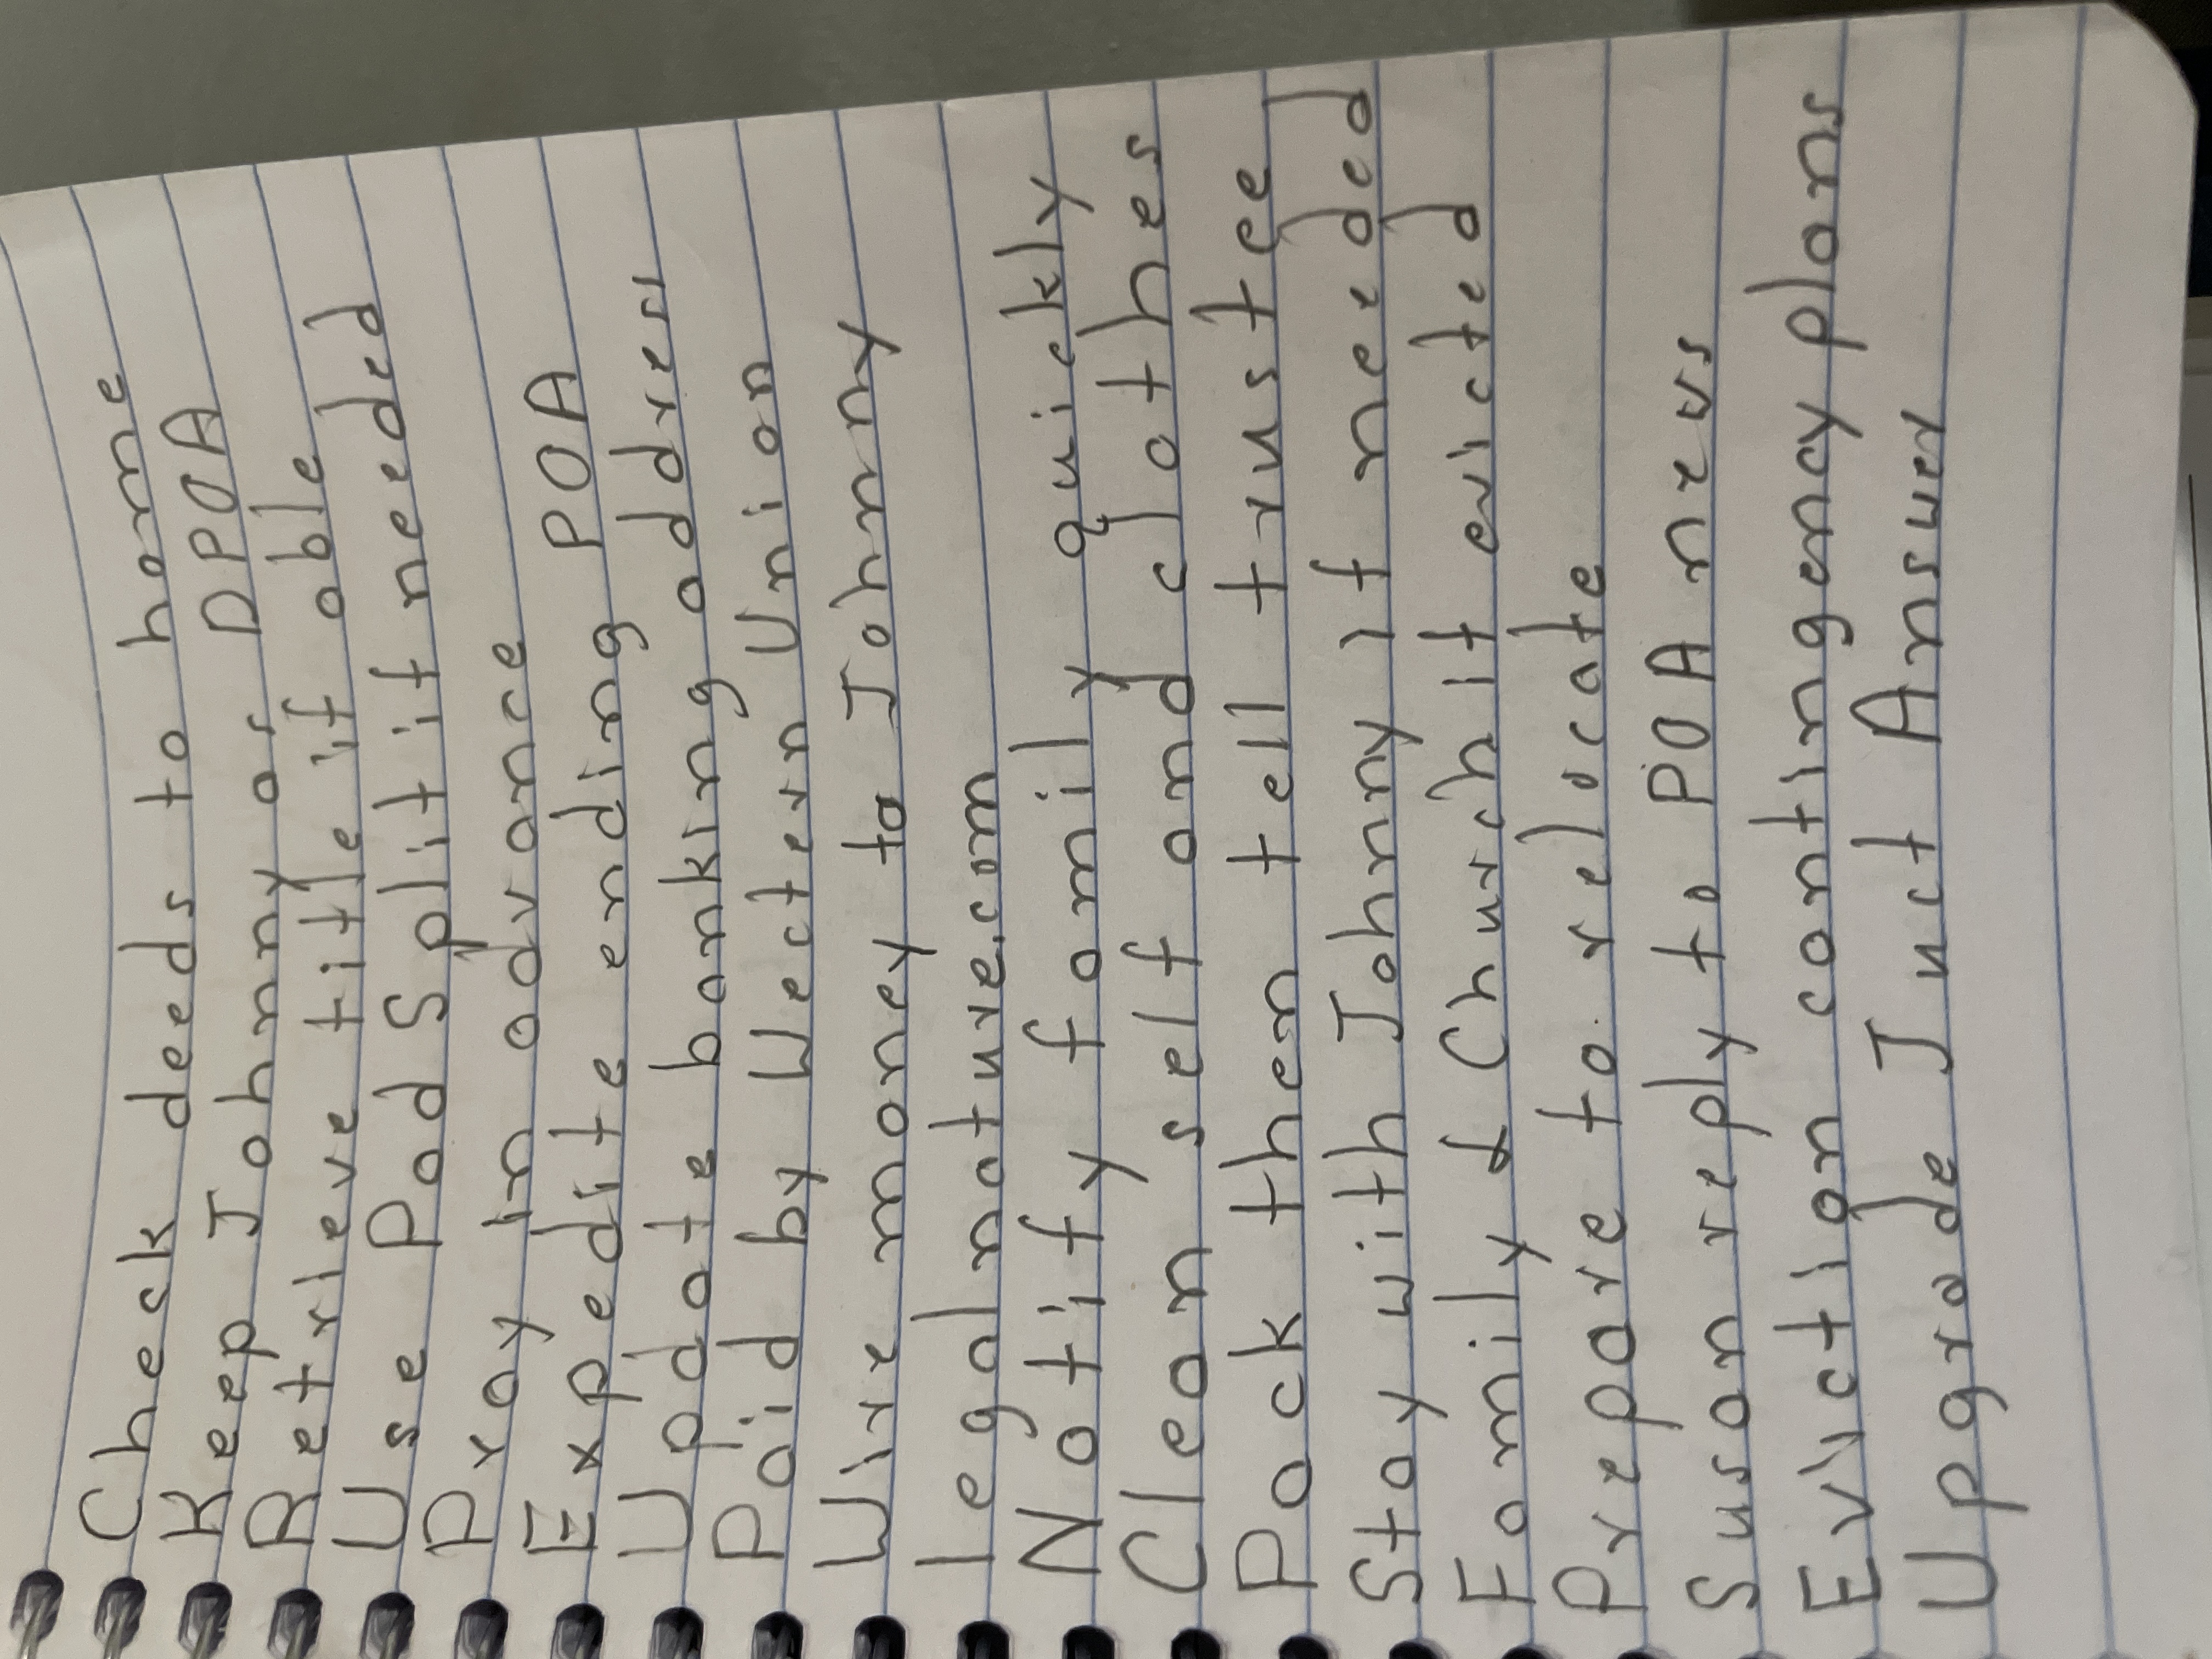 Check deeds to home
Keep Johnny as DPOA
Retrieve title if able
Use Pad Split if needed
Pray in advance
Expedite ending POA
Update banking address
Paid by Western Union
Wire money to Johnny
legalnature.com
Notify family quickly
Clean self and clothes
Pack then tell trustee
Stay with Johnny if needed
Family & Church if evicted
Prepare to relocate
Susan reply to POA news
Eviction contingency plans
Upgrade Just Answer